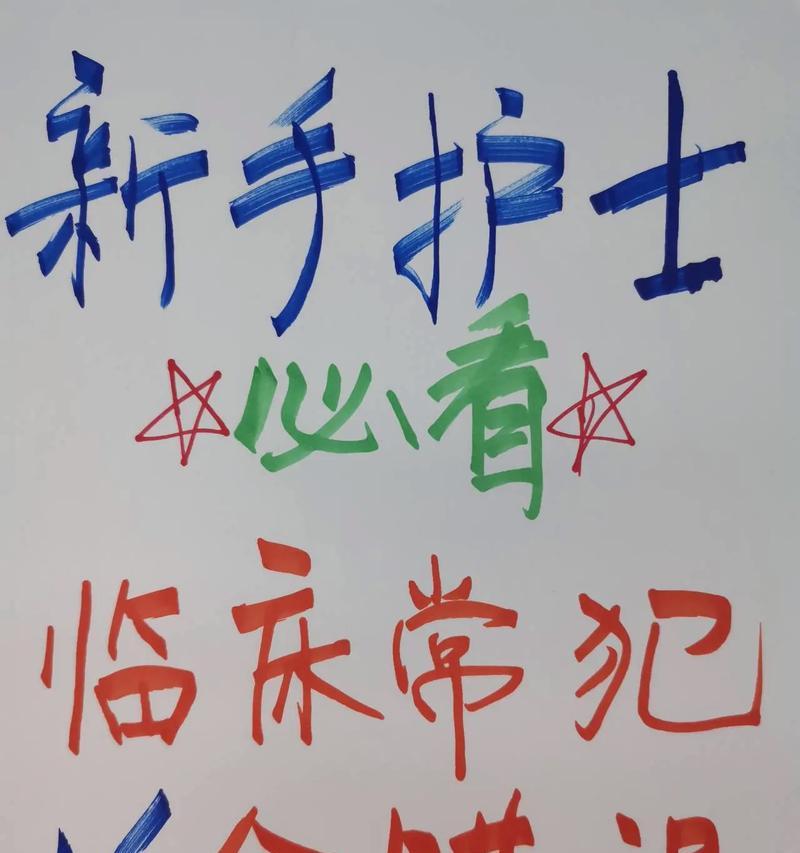 新手护士
必看
临床常犯